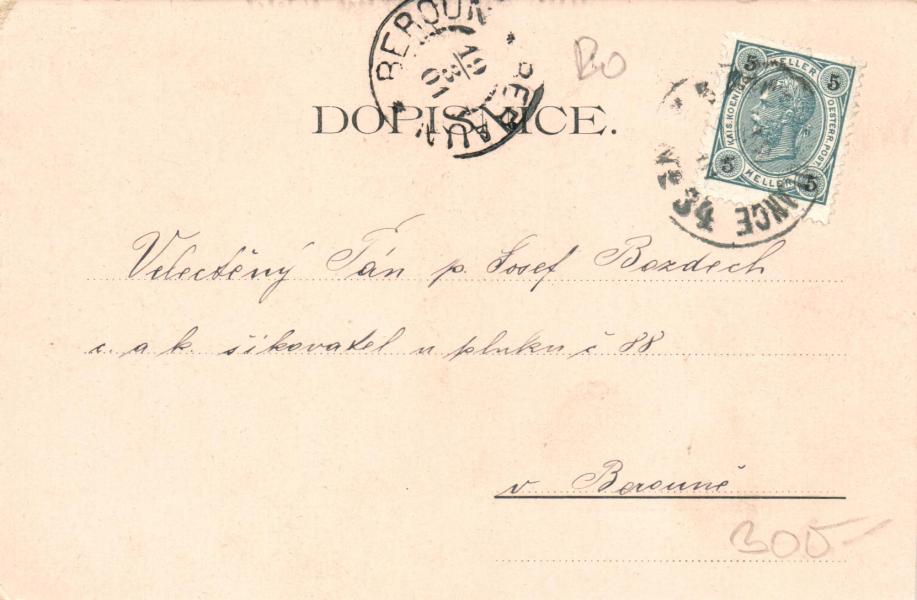 BEROUN * BERAUN *
19
3
01
BO
DOPISNICE.
5 HELLER 5
KAIS. KOENIGL. OSTERR. POST
5 HELLER 5
ANCE
Velectěný Pán p. Josef Bozdech
c. a k. šikovatel u pluku č 88
v Berouně
300-